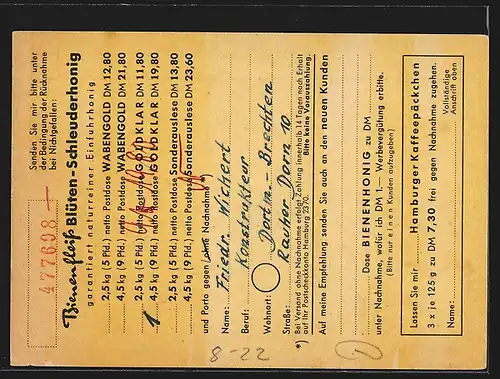 Senden Sie mir bitte unter
der Bedingung der Rücknahme
bei Nichtgefallen:
477698
Bienenfleiß Blüten-Schleuderhonig
garantiert naturreiner Einfuhrhonig
2,5 kg (5 Pfd.) netto Postdose WABENGOLD DM 12,80
4,5 kg (9 Pfd.) netto Postdose WABENGOLD DM 21,80
2,5 kg (5 Pfd.) netto Postdose GOLDKLAR DM 11,80
1 4,5 kg (9 Pfd.) netto Postdose GOLDKLAR DM 19,80
2,5 kg (5 Pfd.) netto Postdose Sonderauslese DM 13,80
4,5 kg (9 Pfd.) netto Postdose Sonderauslese DM 23,60
und Porto gegen (ohne Nachnahme
Name: Friedr. Wichert
Beruf: Konstrukteur
Wohnort: Dortm.-Brechten
Straße: Rauher Dorn 10
*) Bei Versand ohne Nachnahme erfolgt Zahlung innerhalb 14 Tagen nach Erhalt
auf Ihr Postscheckkonto Hamburg 2370. Bitte keine Vorauszahlung.
Auf meine Empfehlung senden Sie auch an den neuen Kunden
Dose BIENENHONIG zu DM
unter Nachnahme, wofür ich DM 1,— Werbevergütung erbitte.
(Bitte nur einen Kunden aufgeben)
Lassen Sie mir Hamburger Kaffeepäckchen
3 x je 125 g zu DM 7,30 frei gegen Nachnahme zugehen.
Name:
Vollständige
Anschrift oben
8-22